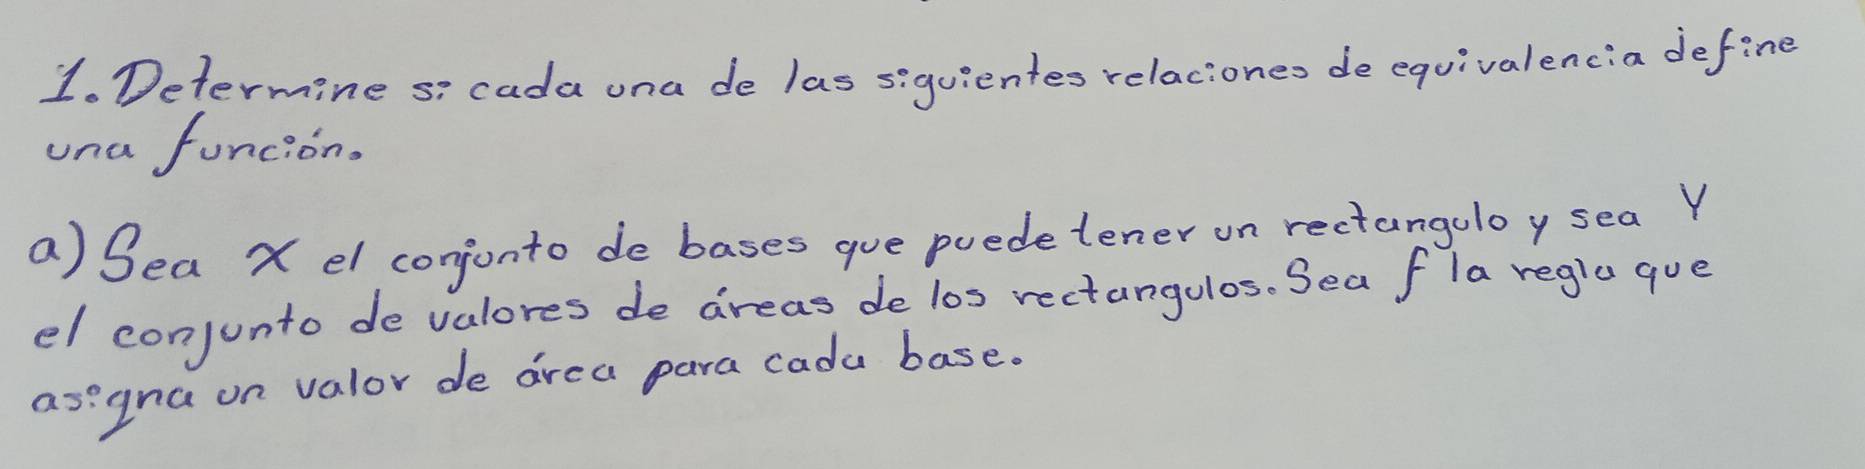 1. Determine si cada una de las siguientes relaciones de equivalencia define
una función.
a) Sea X el conjunto de bases que puede tener un rectangulo y sea Y
el conjunto de valores de áreas de los rectangulos. Sea f la regla que
asigna un valor de área para cada base.